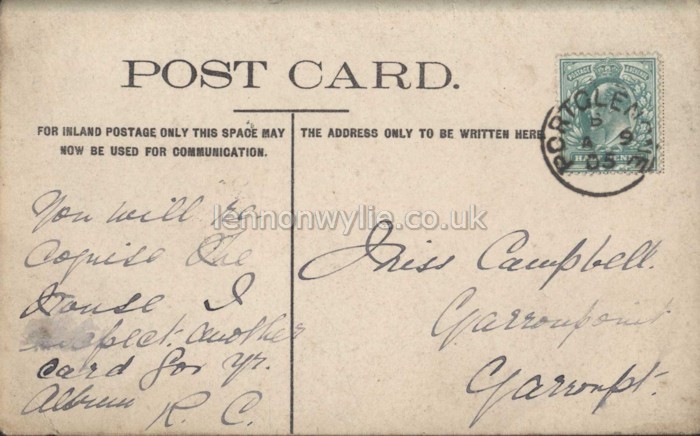 POST CARD.
FOR INLAND POSTAGE ONLY THIS SPACE MAY
NOW BE USED FOR COMMUNICATION.
THE ADDRESS ONLY TO BE WRITTEN HERE.
POSTAGE & REVENUE
HALFPENNY
PORTGLENONE
S 9
05
lennonwylie.co.uk
You will re
cognise the
House I
expect. another
card for yr.
Album
R. C.
Miss Campbell.
Garronpoint
Garronpt.